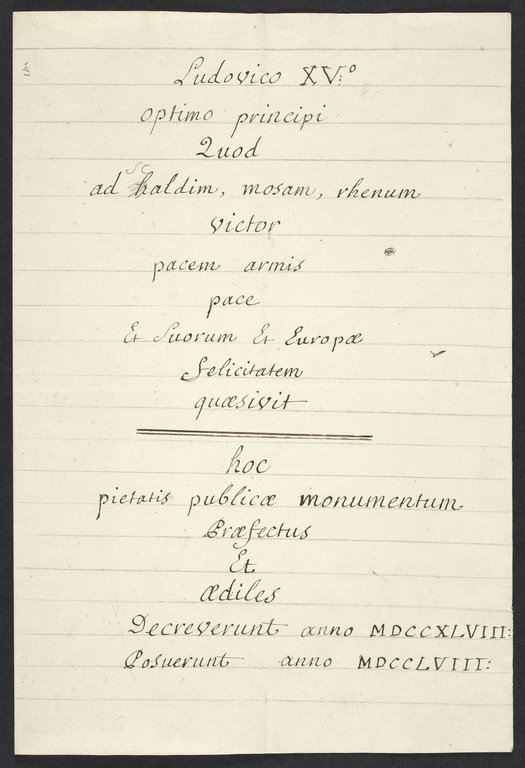 Ludovico XV:º
optimo principi
Quod
ad schaldim, mosam, rhenum
victor
pacem armis
pace
Et Suorum Et Europæ
felicitatem
quæsivit
hoc
pietatis publicæ monumentum
Præfectus
Et
ædiles
Decreverunt anno MDCCXLVIII:
Posuerunt anno MDCCLVIII: